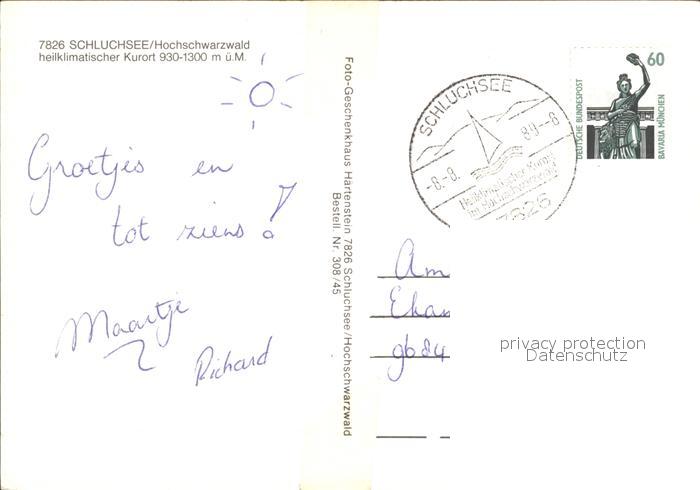 7826 SCHLUCHSEE/Hochschwarzwald
heilklimatischer Kurort 930-1300 m ü.M.
Groetjes en
tot ziens!
Maartje
Richard
Foto-Geschenkhaus Härtenstein 7826 Schluchsee/Hochschwarzwald
Bestell. Nr. 308/45
SCHLUCHSEE
-8.-8.
89--6
Heilklimatischer Kurort
im Hochschwarzwald
7826
60
DEUTSCHE BUNDESPOST
BAVARIA MÜNCHEN
Am
gb84
privacy protection
Datenschutz